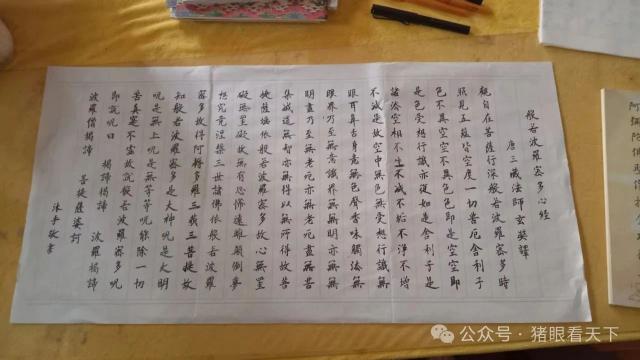 般若波羅蜜多心經
唐三藏法師玄奘譯
觀自在菩薩行深般若波羅蜜多時
照見五蘊皆空度一切苦厄舍利子
色不異空空不異色色即是空空即
是色受想行識亦復如是舍利子是
諸法空相不生不滅不垢不淨不增
不減是故空中無色無受想行識無
眼耳鼻舌身意無色聲香味觸法無
眼界乃至無意識界無無明亦無無
明盡乃至無老死亦無老死盡無苦
集滅道無智亦無得以無所得故菩
提薩埵依般若波羅蜜多故心無罣
礙無罣礙故無有恐怖遠離顛倒夢
想究竟涅槃三世諸佛依般若波羅
蜜多故得阿耨多羅三藐三菩提故
知般若波羅蜜多是大神咒是大明
咒是無上咒是無等等咒能除一切
苦真實不虛故說般若波羅蜜多咒
即說咒曰 揭諦揭諦 波羅揭諦
波羅僧揭諦 菩提薩婆訶
阿彌陀
公众号·猪眼看天下